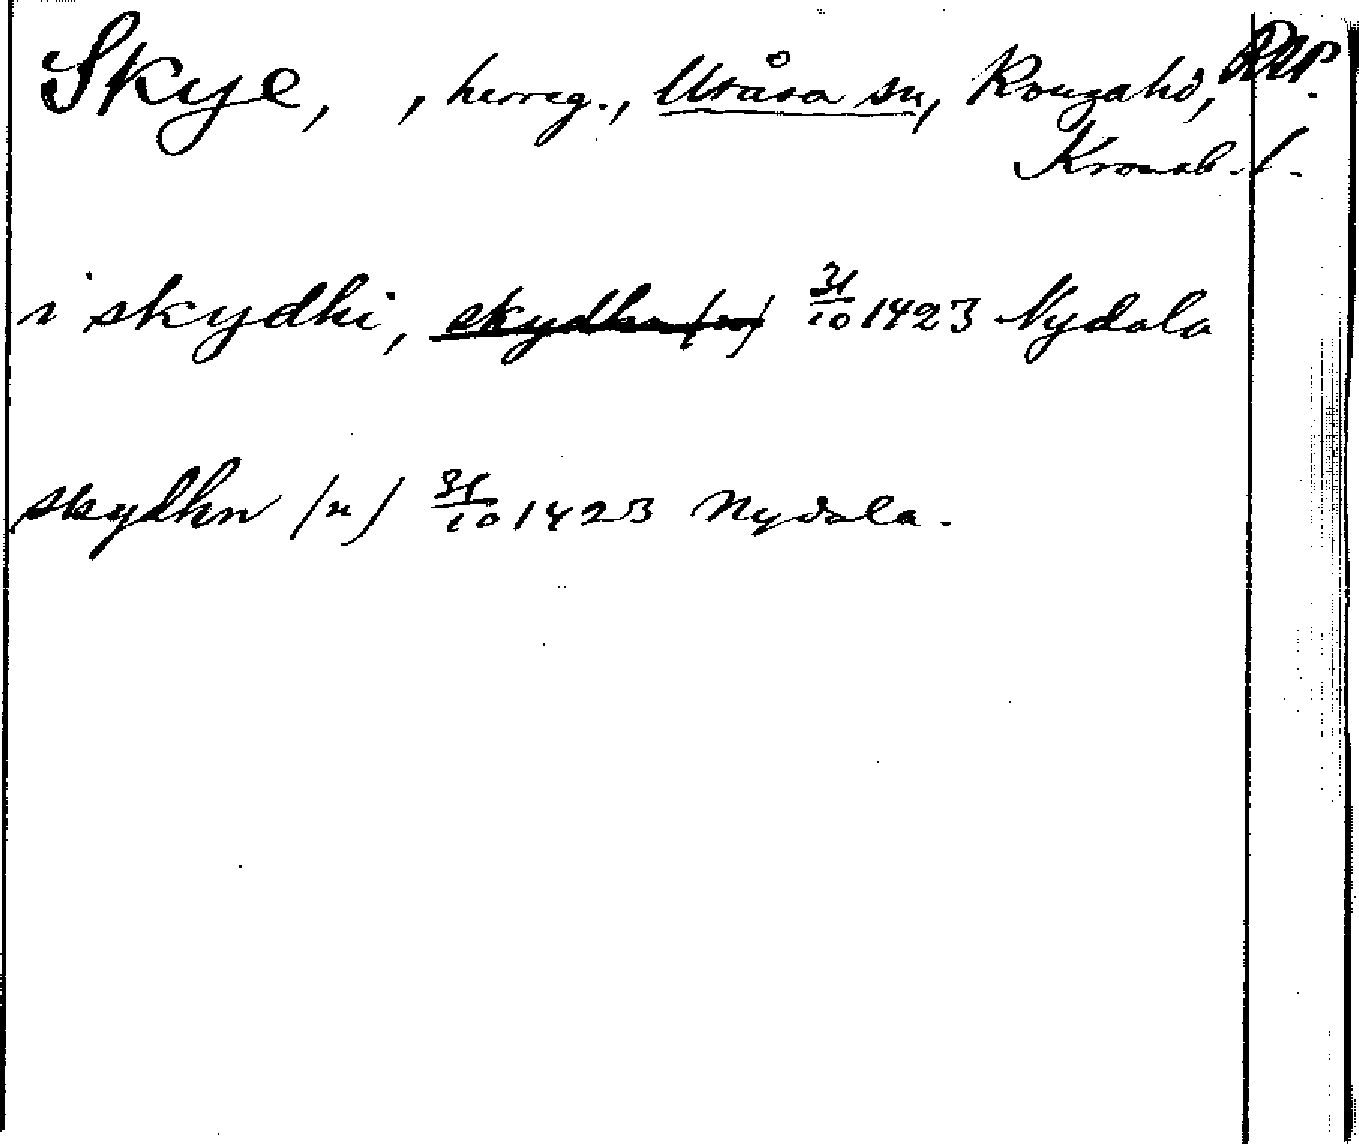 Skye, , herreg., Uråsa sn, Konga hd,
Kronob. l.
i skydhi, skydhn (n) 31/10 1423 Nydala
skydhn (n) 31/10 1423 Nydala.